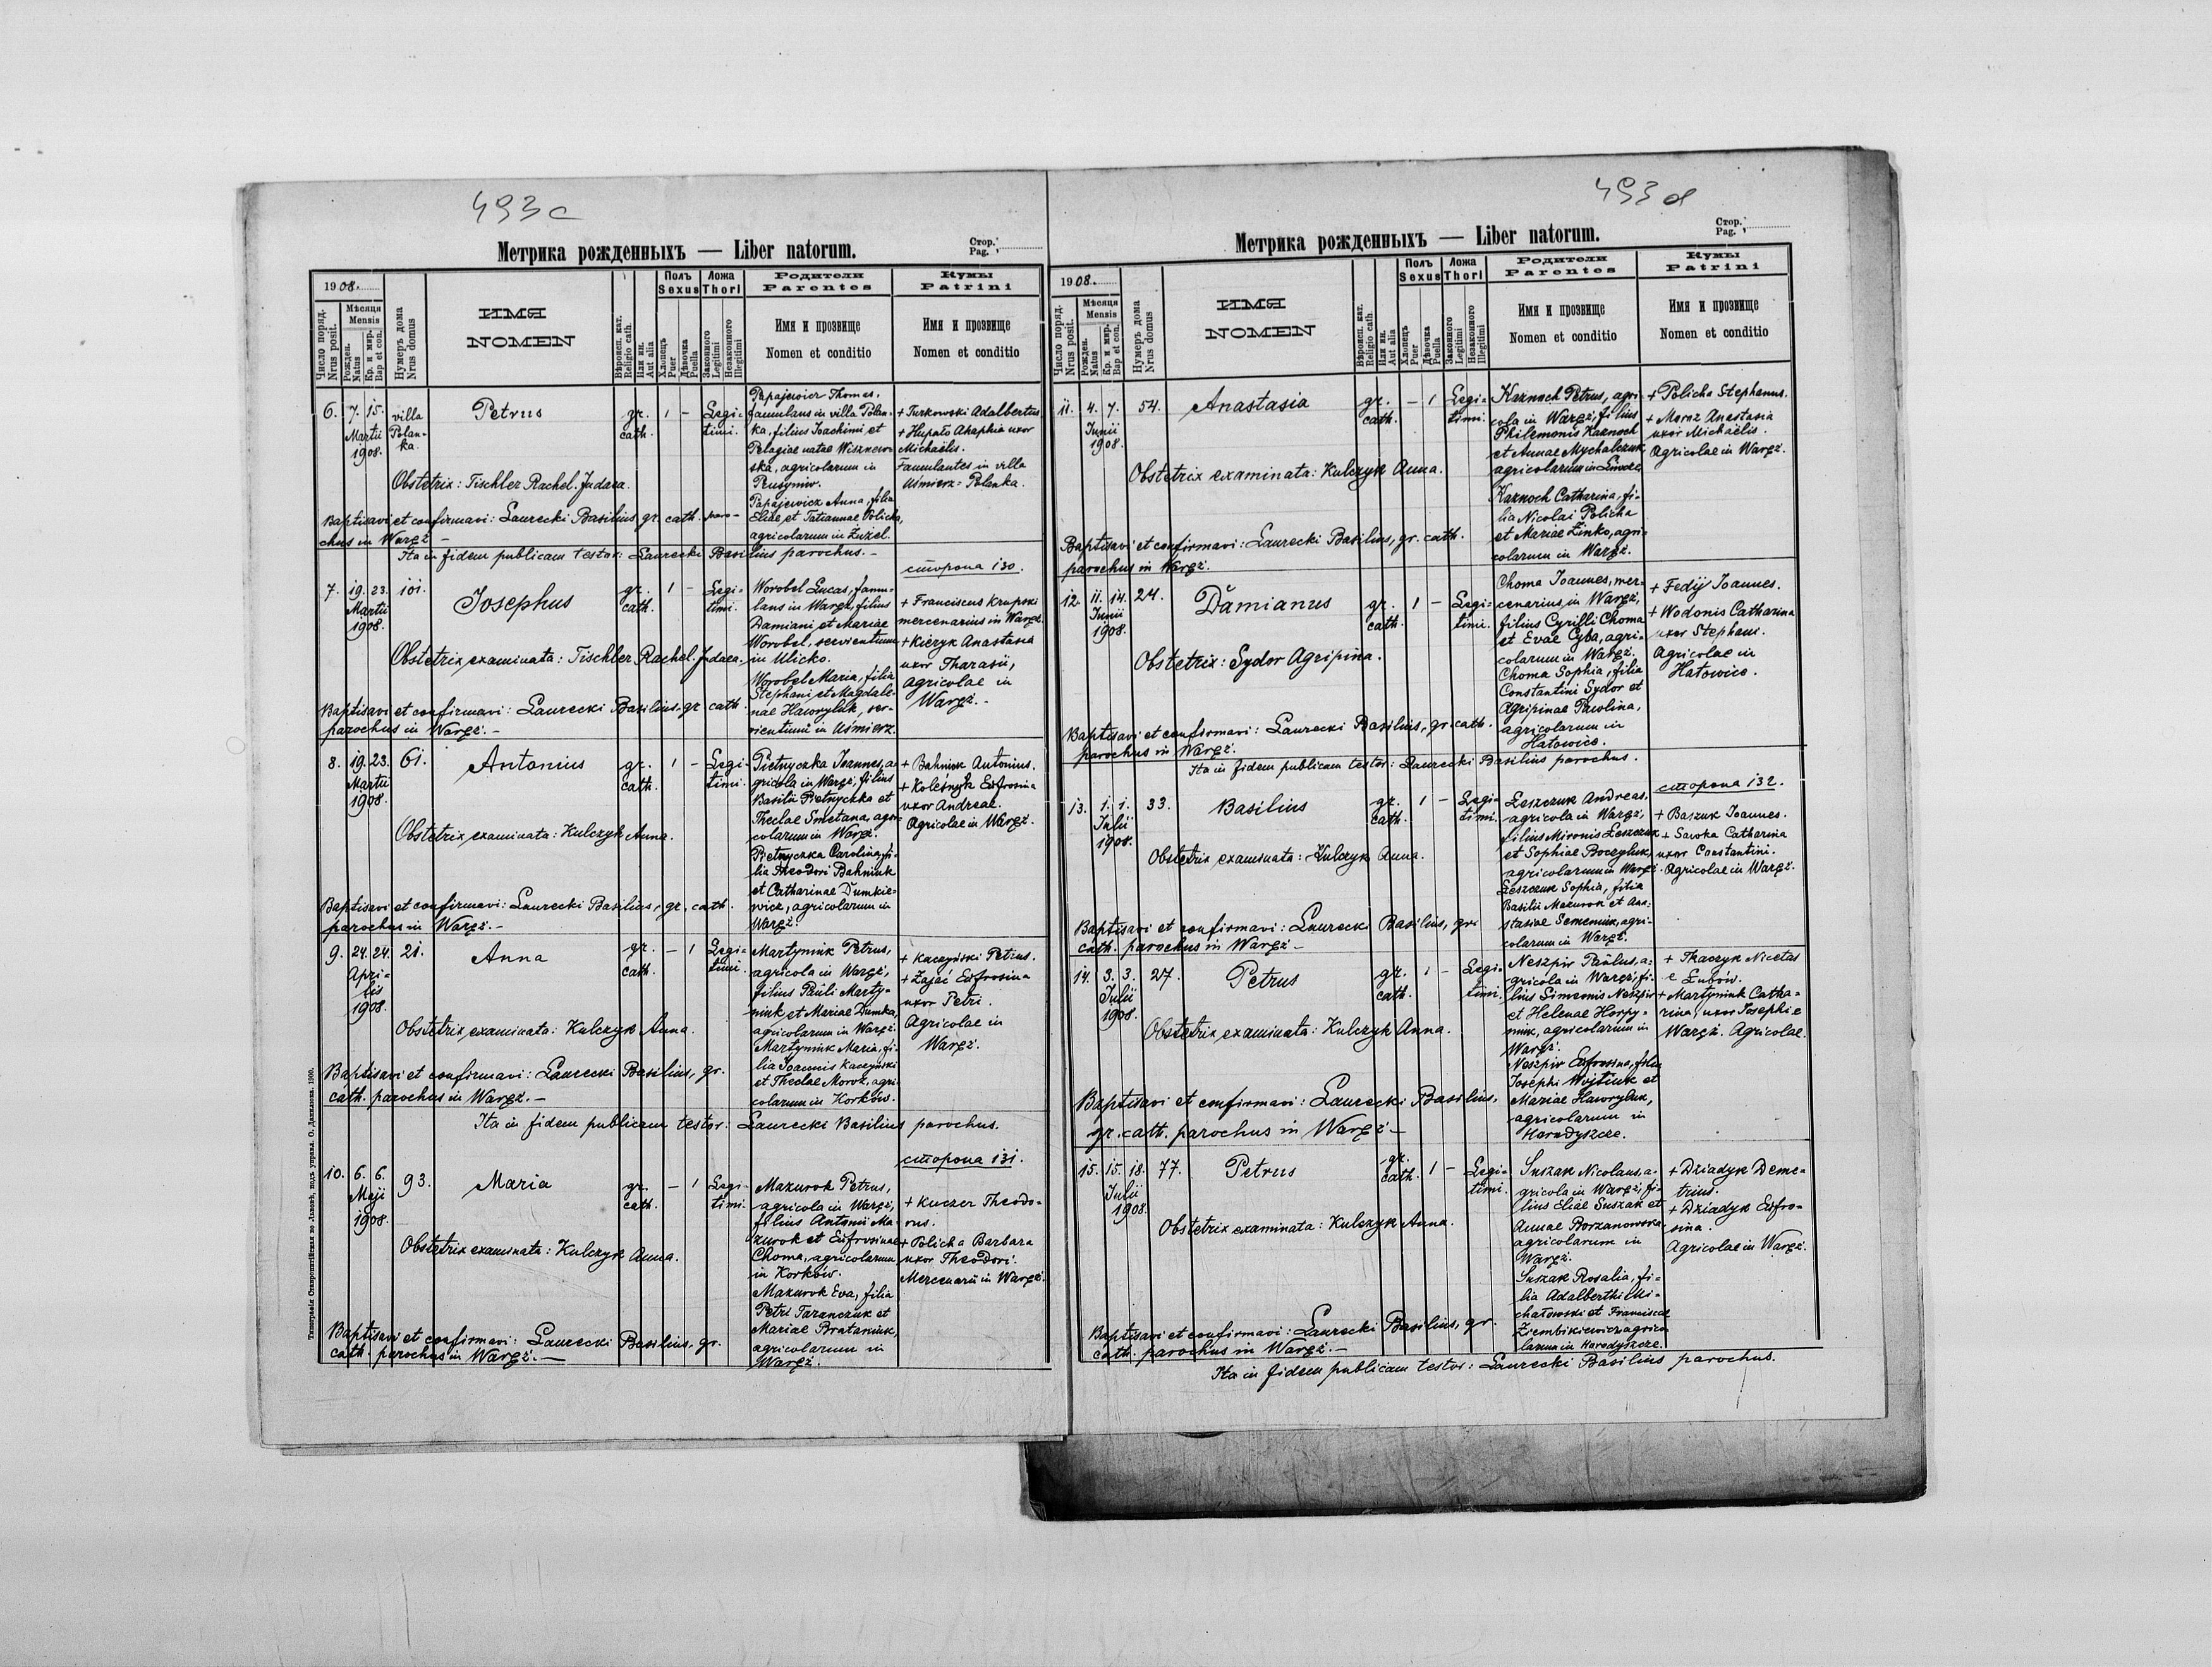 493c
Метрика рожденныхъ — Liber natorum.
Стор.
Pag.
1908.
Число поряд.
Nrus posit.
Мѣсяця
Mensis
Рожден.
Natus
Кр. и мир.
Bap et con.
Нумеръ дома
Nrus domus
ИМЯ
NOMEN
Вѣроисп. кат.
Religio cath.
Или ин.
Aut alia
Полъ
Sexus
Хлопець
Puer
Дѣвочка
Puella
Ложа
Thori
Законного
Legitimi
Незаконного
Illegitimi
Родители
Parentes
Имя и прозвище
Nomen et conditio
Кумы
Patrini
Имя и прозвище
Nomen et conditio
6. 7. 15. Martii 1908. villa Polan-
ka.
Petrus
gr. cath. 1 - Legi-
timi.
Papajewicz Thomas,
famulans in villa Polan-
ka, filius Joachimi et
Pelagiae natae Wiszniew-
ska, agricolarum in
Papajewicz Anna, filia
Eliae et Tatiannae Policha,
agricolarum in Żużel.
+ Turkowski Adalbertus
+ Hupało Ahaphia uxor
Michaëlis.
Famulantes in villa
Uśmierz=Polanka.
Obstetrix: Tischler Rachel. Judaea.
Baptisavi et confirmavi: Laurecki Basilius, gr. cath. paro-
chus in Waręż —
Ita in fidem publicam testor: Laurecki Basilius parochus. —
сторона 130.
7. 19. 23. Martii 1908. 101.
Josephus
gr. cath. 1 - Legi-
timi.
Worobel Lucas, famu-
lans in Waręż, filius
Damiani et Mariae
Worobel, servientium
in Ulicko.
Worobel Maria, filia
Stephani et Magdale-
nae Hawryluk, ser-
vientium in Uśmierz.
+ Franciscus Krupski
mercenarius in Waręż.
+ Kiczyk Anastasia
uxor Tharasii,
Agricolae in
Waręż. -
Obstetrix examinata: Tischler Rachel. Judaea.
Baptisavi et confirmavi: Laurecki Basilius, gr. cath.
parochus in Waręż. —
8. 19. 23. Martii 1908. 61.
Antonius
gr. cath. 1 - Legi-
timi.
Pietnyczka Joannes, a-
gricola in Waręż, filius
Basilii Pietnyczka et
Theclae Smetana, agri-
colarum in Waręż.
Pietnyczka Carolina, fi-
lia Theodori Bahniuk
et Catharinae Dumkie-
wicz, agricolarum in
Waręż.
+ Bahniuk Antonius.
+ Koleśnyk Eufrosina
uxor Andreae.
Agricolae in Waręż.
Obstetrix examinata: Kulczyk Anna.
Baptisavi et confirmavi: Laurecki Basilius, gr. cath.
parochus in Waręż. —
9. 24. 24. Apri-
lis 1908. 21.
Anna
gr. cath. - 1 Legi-
timi.
Martyniuk Petrus,
agricola in Waręż,
filius Pauli Marty-
niuk et Mariae Dumka,
agricolarum in Waręż.
Martyniuk Maria, fi-
lia Joannis Kaczyński
et Theclae Moroz, agri-
colarum in Korków.
+ Kaczyński Petrus.
+ Zając Eufrosina
uxor Petri.
Agricolae in
Waręż.
Obstetrix examinata: Kulczyk Anna.
Baptisavi et confirmavi: Laurecki Basilius, gr.
cath. parochus in Waręż. —
Ita in fidem publicam testor: Laurecki Basilius parochus.
сторона 131.
10. 6. 6. Maji 1908. 93.
Maria
gr. cath. - 1 Legi-
timi.
Mazurok Petrus,
agricola in Waręż,
filius Antonii Ma-
zurok et Eufrosinae
Choma, agricolarum
in Korków.
Mazurok Eva, filia
Petri Taranczuk et
Mariae Brataniuk,
agricolarum in
Waręż.
+ Kuczer Theodo-
rus.
+ Policha Barbara
uxor Theodori.
Mercenarii in Waręż.
Obstetrix examinata: Kulczyk Anna.
Baptisavi et confirmavi: Laurecki Basilius, gr.
cath. parochus in Waręż. —
Типографія Ставропигійская во Львовѣ, подъ управл. О. Данилюка. 1900.
493d
Метрика рожденныхъ — Liber natorum.
Стор.
Pag.
1908.
Число поряд.
Nrus posit.
Мѣсяця
Mensis
Рожден.
Natus
Кр. и мир.
Bap et con.
Нумеръ дома
Nrus domus
ИМЯ
NOMEN
Вѣроисп. кат.
Religio cath.
Или ин.
Aut alia
Полъ
Sexus
Хлопець
Puer
Дѣвочка
Puella
Ложа
Thori
Законного
Legitimi
Незаконного
Illegitimi
Родители
Parentes
Имя и прозвище
Nomen et conditio
Кумы
Patrini
Имя и прозвище
Nomen et conditio
11. 4. 7. Junii 1908. 54.
Anastasia
gr. cath. - 1 Legi-
timi.
Kaznoch Petrus, agri-
cola in Waręż, filius
Philemonis Kaznoch
et Annae Mychalczuk,
agricolarum in
Kaznoch Catharina, fi-
lia Nicolai Policha
et Mariae Zinko, agri-
colarum in Waręż.
+ Policha Stephanus.
+ Moroz Anastasia
uxor Michaëlis.
Agricolae in Waręż.
Obstetrix examinata: Kulczyk Anna.
Baptisavi et confirmavi: Laurecki Basilius, gr. cath.
parochus in Waręż.
12. 11. 14. Junii 1908. 24.
Damianus
gr. cath. 1 - Legi-
timi.
Choma Joannes, mer-
cenarius in Waręż,
filius Cyrilli Choma
et Evae Cyba, agri-
colarum in Waręż.
Choma Sophia, filia
Constantini Sydor et
Agripinae Pawlina,
agricolarum in
Hatowice.
+ Fedij Joannes.
+ Wodonis Catharina
uxor Stephani.
Agricolae in
Hatowice.
Obstetrix: Sydor Agripina.
Baptisavi et confirmavi: Laurecki Basilius, gr. cath.
parochus in Waręż.
Ita in fidem publicam testor: Laurecki Basilius parochus.
сторона 132.
13. 1. 1. Julii 1908. 33.
Basilius
gr. cath. 1 - Legi-
timi.
Łeszczuk Andreas,
agricola in Waręż,
filius Mironis Łeszczuk
et Sophiae Boczyluk,
agricolarum in Waręż.
Łeszczuk Sophia, filia
Basilii Mazurok et Ana-
stasiae Semeniuk, agri-
colarum in Waręż.
+ Baszuk Joannes.
+ Sawka Catharina
uxor Constantini.
Agricolae in Waręż.
Obstetrix examinata: Kulczyk Anna.
Baptisavi et confirmavi: Laurecki Basilius, gr.
cath. parochus in Waręż —
14. 3. 3. Julii 1908. 27.
Petrus
gr. cath. 1 - Legi-
timi.
Neszpir Paulus, a-
gricola in Waręż, fi-
lius Simeonis Neszpir
et Helenae Horpy-
niuk, agricolarum in
Waręż.
Neszpir Eufrosina, filia
Josephi Wojtiuk et
Mariae Hawryluk,
agricolarum in
Horodyszcze.
+ Tkaczyk Nicetas
e Łubów.
+ Martyniuk Catha-
rina, uxor Josephi e
Waręż. Agricolae.
Obstetrix examinata: Kulczyk Anna.
Baptisavi et confirmavi: Laurecki Basilius,
gr. cath. parochus in Waręż —
15. 15. 18. Julii 1908. 77.
Petrus
gr. cath. 1 - Legi-
timi.
Suszak Nicolaus, a-
gricola in Waręż, fi-
lius Eliae Suszak et
Annae Borzanowska
agricolarum in
Waręż.
Suszak Rosalia, fi-
lia Adalberthi Mi-
chałowski et Franciscae
Ziembikiewicz agrico
larum in Horodyszcze.
+ Dziadyk Deme-
trius.
+ Dziadyk Eufro-
sina.
Agricolae in Waręż.
Obstetrix examinata: Kulczyk Anna.
Baptisavi et confirmavi: Laurecki Basilius, gr.
cath. parochus in Waręż. —
Ita in fidem publicam testor: Laurecki Basilius parochus.